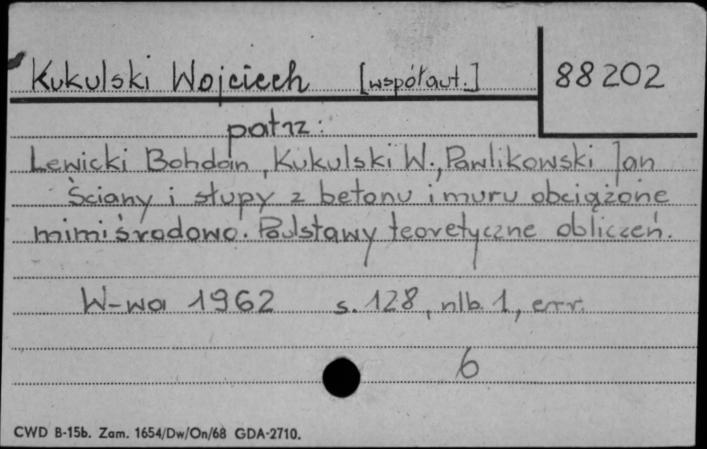 Kukulski Wojciech [współaut.] 88202
patrz:
Lewicki Bohdan, Kukulski W., Pawlikowski Jan
Ściany i słupy z betonu i muru obciążone
mimośrodowo. Podstawy teoretyczne obliczeń.
W-wa 1962 s. 128, nlb. 1, err.
6
CWD B-15b. Zam. 1654/Dw/On/68 GDA-2710.